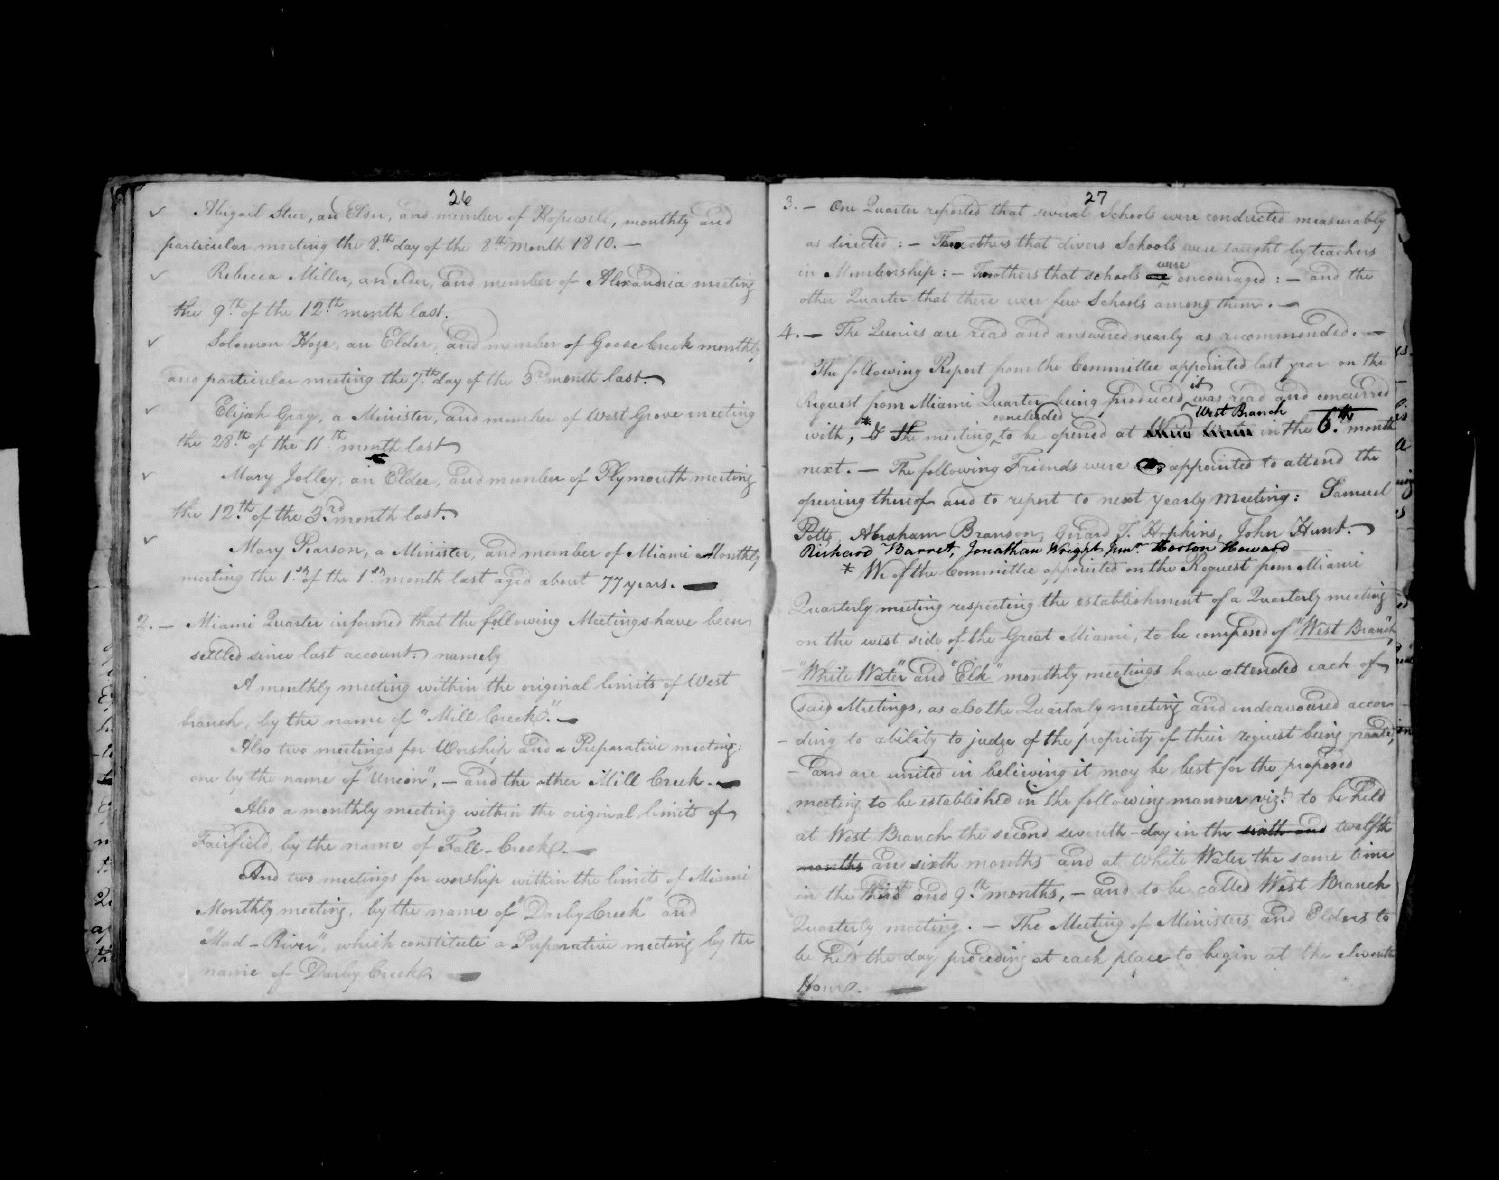 26
Abigail Steer, an Elder, and member of Hopewell, monthly and
particular meeting the 8th day of the 8th month 1810. —
Rebecca Miller, an Elder, and member of Alexandria meeting
the 9th of the 12th month last.
Solomon Hoge, an Elder, and member of Goose Creek monthly
and particular meeting the 7th day of the 3rd month last.
Elijah Gray, a Minister, and member of West Grove meeting
the 28th of the 11th month last
Mary Jolley, an Elder, and member of Plymouth meeting
the 12th of the 3rd month last.
Mary Pearson, a Minister, and member of Miami Monthly
meeting the 1st of the 1st month last aged about 77 years. —
2. — Miami Quarter informed that the following Meetings have been
settled since last account. namely
A monthly meeting within the original limits of West
branch, by the name of "Mill Creek". —
Also two meetings for Worship and a Preparative meeting:
one by the name of "Union", — and the other Mill Creek. —
Also a monthly meeting within the original limits of
Fairfield, by the name of Fall-Creek. —
And two meetings for worship within the limits of Miami
Monthly meeting, by the name of "Darby Creek" and
"Mad-River", which constitute a Preparative meeting by the
name of Darby Creek. —
27
3. — One Quarter reported that several Schools were conducted measurably
as directed: — Two others that divers Schools were taught by teachers
in Membership: — Two others that schools were encouraged: — and the
other Quarter that there were few Schools among them. —
4. — The Queries are read and answered nearly as recommended. —
The following Report from the Committee appointed last year on the
request from Miami Quarter being produced, it was read and concurred
with,* & The meeting concluded to be opened at West Branch in the 6th month
next. — The following Friends were appointed to attend the
opening thereof and to report to next yearly meeting: Samuel
Potts, Abraham Branson, Gerard T. Hopkins, John Hunt.
Richard Barret, Jonathan Wright Junr. Horton Howard
* We of the Committee appointed on the Request from Miami
Quarterly meeting respecting the establishment of a Quarterly meeting
on the west side of the Great Miami, to be composed of "West Branch",
"White Water" and "Elk" monthly meetings have attended each of
said Meetings, as also the Quarterly meeting and endeavoured accor-
-ding to ability to judge of the propriety of their request being granted,
— and are united in believing it may be best for the proposed
meeting to be established in the following manner vizt. to be held
at West Branch the second seventh-day in the sixth and twelfth
months and sixth months and at White Water the same time
in the third and 9th months, — and to be called West Branch
Quarterly meeting. — The Meeting of Ministers and Elders to
be held the day preceding at each place to begin at the eleventh
Hour. —